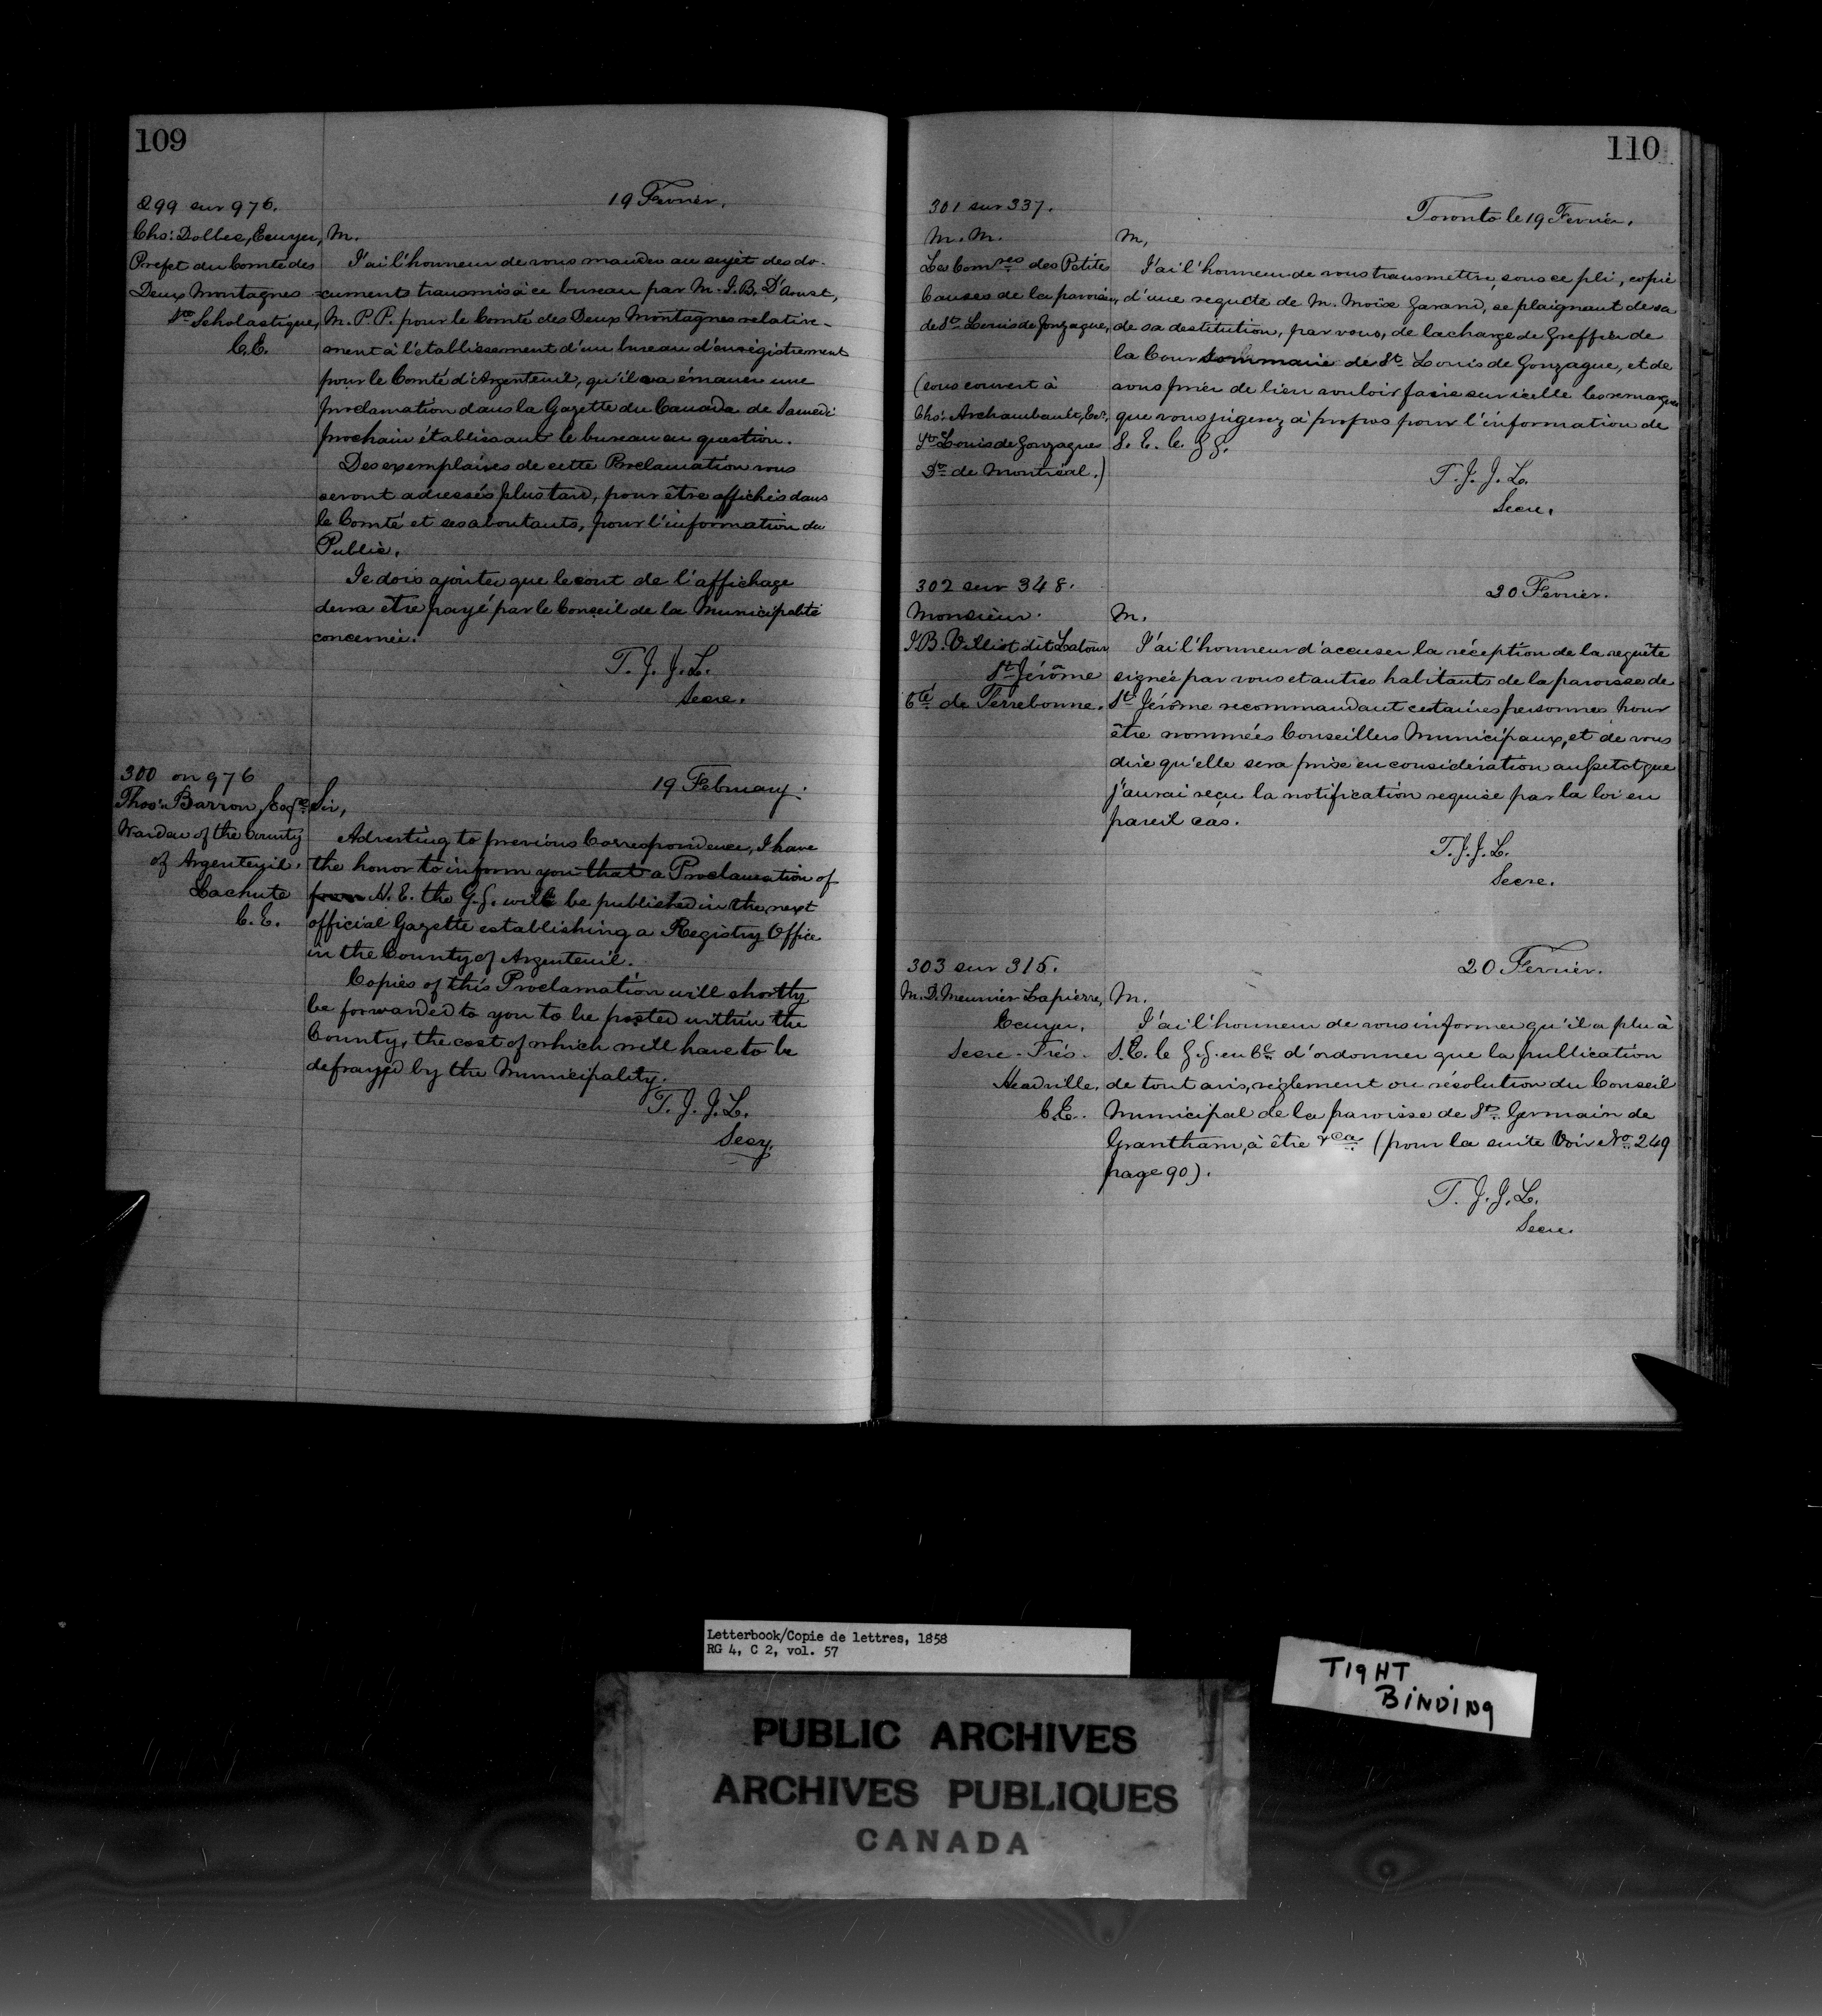 109
299 sur 976.
19 Fevrier.
Chs: Dolbec, Ecuyer,
Prefet du Comté des
Deux Montagnes
Ste Scholastique,
C.E.
M.
J'ai l'honneur de vous mander au sujet des do-
cuments transmis à ce bureau par M. J. B. D'Aoust,
M. P. P. pour le Comté des Deux Montagnes relative-
ment à l'établissement d'un bureau d'enrégistrement
pour le Comté d'Argenteuil, qu'il va émaner une
proclamation dans la Gazette du Canada de Samedi
prochain établissant le bureau en question.
Des exemplaires de cette Proclamation vous
seront adressés plus tard, pour être affichés dans
le Comté et ses aboutants, pour l'information du
Public.
Je dois ajouter que le cout de l'affichage
devra être payé par le Conseil de la Municipalité
concernée.
T. J. J. L.
Secre.
300 on 976
19 February.
Thos: Barron, Esqre
Warden of the County
of Argenteuil.
Lachute
C. E.
Sir,
Adverting to previous Correspondence, I have
the honor to inform you that a Proclamation of
from H. E. the G. G. will be published in the next
official Gazette establishing a Registry Office
in the County of Argenteuil.
Copies of this Proclamation will shortly
be forwarded to you to be posted within the
County, the cost of which will have to be
defrayed by the Municipality.
T. J. J. L.
Secy.
110
301 sur 337.
Toronto le 19 Fevrier.
M. M.
Les Comres des Petites
Causes de la paroisse
de St. Louis de Gonzague,
(sous couvert à
Chs: Archambault, Ecr,
St. Louis de Gonzague
Dt de Montréal.)
M,
J'ai l'honneur de vous transmettre, sous ce pli, copie
d'une requête de M. Moïse Garand, se plaignant de sa
de sa destitution, par vous, de la charge de Greffier de
la Cour Sommaire de St. Louis de Gonzague, et de
vous prier de bien vouloir faire sur icelle les remarques
que vous jugerez à propos pour l'information de
S. E. le G G.
T. J. J. L.
Secre.
302 sur 348.
20 Fevrier.
Monsieur.
J B. Villiot dit Latour
St Jérôme
Cté de Terrebonne.
M.
J'ai l'honneur d'accuser la réception de la requête
signée par vous et autres habitants de la paroisse de
St Jérôme recommandant certaines personnes pour
être nommées Conseillers Municipaux, et de vous
dire qu'elle sera prise en considération aussitot que
j'aurai reçu la notification requise par la loi en
pareil cas.
T. J. J. L.
Secre.
303 sur 315.
20 Fevrier.
M. D. Meunier Lapierre,
Ecuyer.
Secre-Trés.
Headville.
C.E.
M.
J'ai l'honneur de vous informer qu'il a plu à
S. E. le G. G. en Cl d'ordonner que la publication
de tout avis, réglement ou résolution du Conseil
Municipal de la paroisse de St. Germain de
Grantham, à être &ca (pour la suite Voir No. 249
page 90).
T. J. J. L.
Secre.
Letterbook/Copie de lettres, 1858
RG 4, C 2, vol. 57
TIGHT
BINDING
PUBLIC ARCHIVES
ARCHIVES PUBLIQUES
CANADA